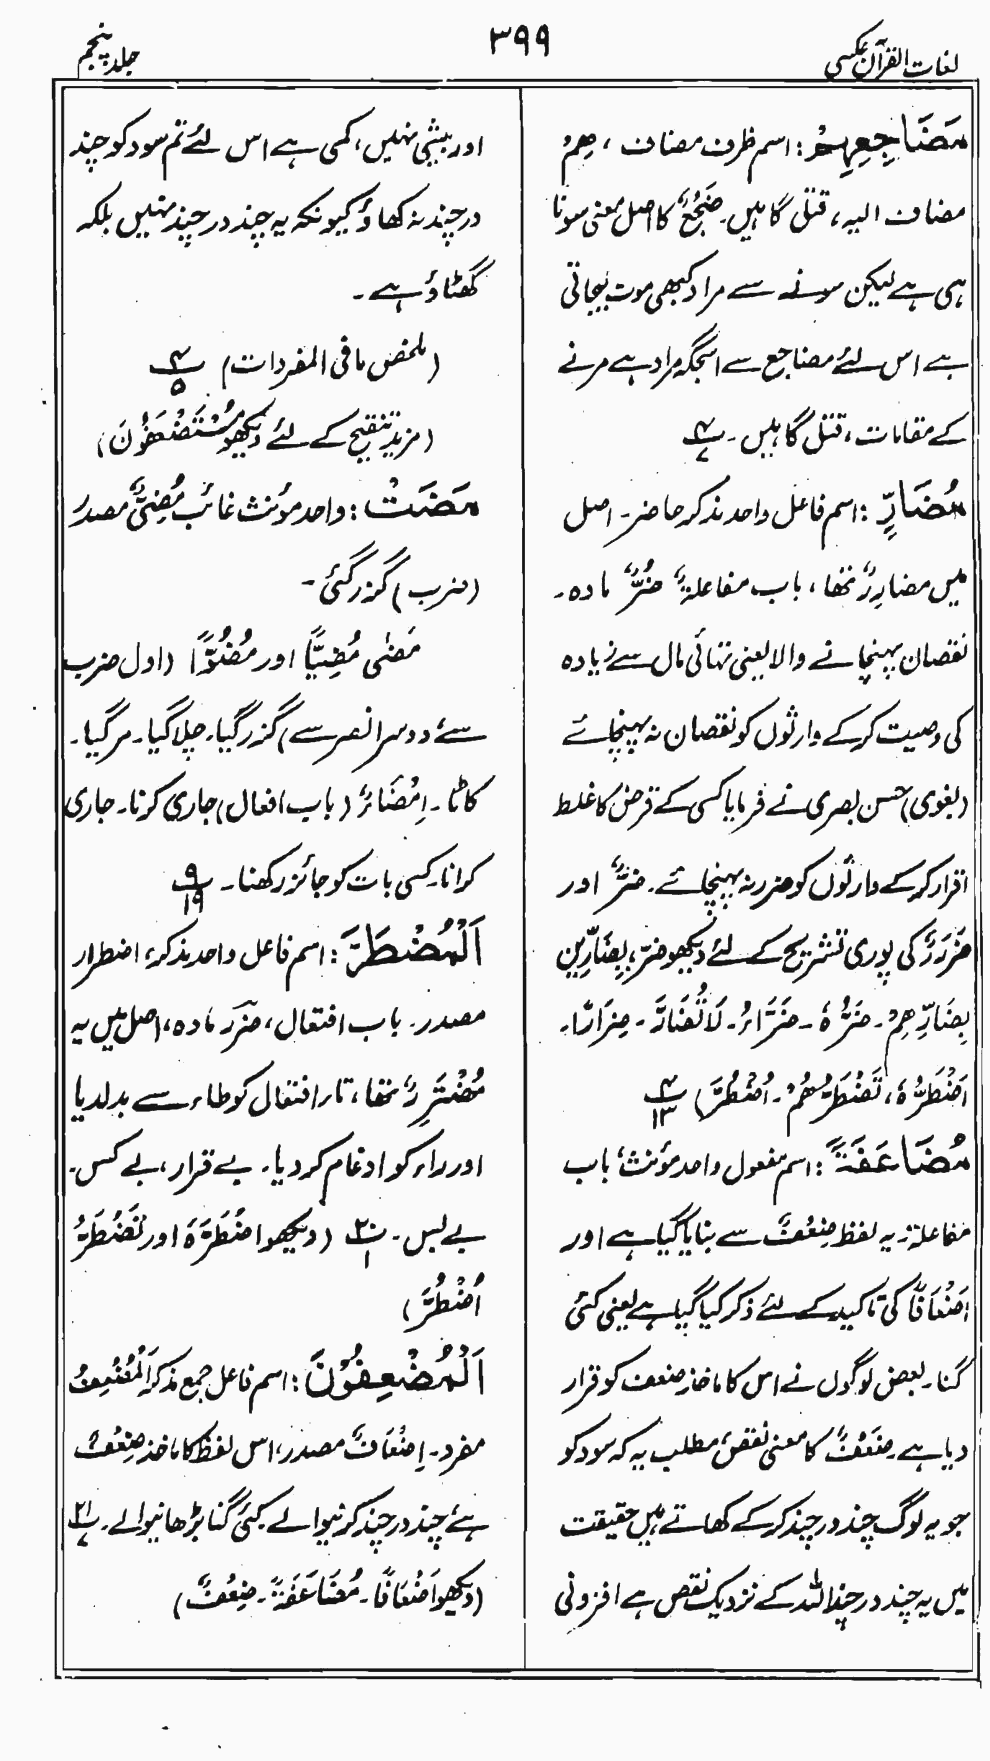 لغات القرآن عکسی
۳۹۹
جلد پنجم
مَضَاجِعِہِمْ: اسم ظرف مضاف، ھِمْ
مضاف الیہ، قتل گاہیں۔ ضَجْعٌ کا اصل معنی سونا
ہی ہے لیکن سونے سے مراد کبھی موت لیجاتی
ہے اس لئے مضاجع سے اسجگہ مراد ہے مرنے
کے مقامات، قتل گاہیں۔ ۴/۷
مُضَارٍّ: اسم فاعل واحد مذکر حاضر۔ اصل
میں مضارِرٌ تھا، باب مفاعلۃٌ ضَرٌّ مادہ۔
نقصان پہنچانے والا یعنی تہائی مال سے زیادہ
کی وصیت کرکے وارثوں کو نقصان نہ پہنچائے
(بغوی) حسن بصری نے فرمایا کسی کے قرض کا غلط
اقرار کرکے وارثوں کو ضرر نہ پہنچائے۔ ضَرٌّ اور
ضَرَرٌ کی پوری تشریح کے لئے دیکھو ضرّ، بِضَارِّیْن
بِضَارِّھِمْ۔ ضَرُّہٗ۔ ضَرَّاءُ۔ لَا تُضَارَّ۔ ضِرَارًا۔
اَضْطَرُّہٗ، نَضْطَرُّھُمْ۔ اُضْطُرَّ) ۴/۱۳
مُضَاعَفَۃً: اسم مفعول واحد مؤنث، باب
مفاعلۃ۔ یہ لفظ ضِعْفٌ سے بنایا گیا ہے اور
اَضْعَافًا کی تاکید کے لئے ذکر کیا گیا ہے یعنی کئی
گنا۔ بعض لوگوں نے اس کا ماخذ ضعف کو قرار
دیا ہے۔ ضَعْفٌ کا معنی نقص، مطلب یہ کہ سود کو
جو یہ لوگ چند در چند کرکے کھاتے ہیں حقیقت
میں یہ چند در چند اللہ کے نزدیک نقص ہے افزونی
اور بیشی نہیں، کمی ہے اس لئے تم سود کو چند
در چند نہ کھاؤ کیونکہ یہ چند در چند نہیں بلکہ
گھٹاؤ ہے۔
(ملخص ما فی المفردات) ۴/۵
(مزید تنقیح کے لئے دیکھو مُسْتَضْعَفُوْنَ)
مَضَتْ: واحد مؤنث غائب مُضِیٌّ مصدر
(ضرب) گزر گئی۔
مَضٰی مُضِیًّا اور مُضُوًّا (اول ضرب
سے، دوسرا نصر سے) گزر گیا۔ چلا گیا۔ مر گیا۔
کاٹا۔ اِمْضَاءٌ (باب افعال) جاری کرنا۔ جاری
کرانا۔ کسی بات کو جائز رکھنا۔ ۹/۱۹
اَلْمُضْطَرَّ: اسم فاعل واحد مذکر، اضطرار
مصدر۔ باب افتعال، ضرر مادہ، اصل میں یہ
مُضْتَرِرٌ تھا، تاء افتعال کو طاء سے بدلدیا
اور راء کو ادغام کردیا۔ بے قرار، بے کس۔
بے بس۔ ۲۰/۱ (دیکھو اضْطَرَّہٗ اور نَضْطَرُّ
اُضْطُرَّ)
اَلْمُضْعِفُوْنَ: اسم فاعل جمع مذکر، اَلْمُضْعِفُ
مفرد۔ اِضْعَافٌ مصدر، اس لفظ کا ماخذ ضِعْفٌ
ہے، چند در چند کرنیوالے کئی گنا بڑھانیوالے۔ ۲۱/۷
(دیکھو اَضْعَافًا۔ مُضَاعَفَۃً۔ ضِعْفٌ)